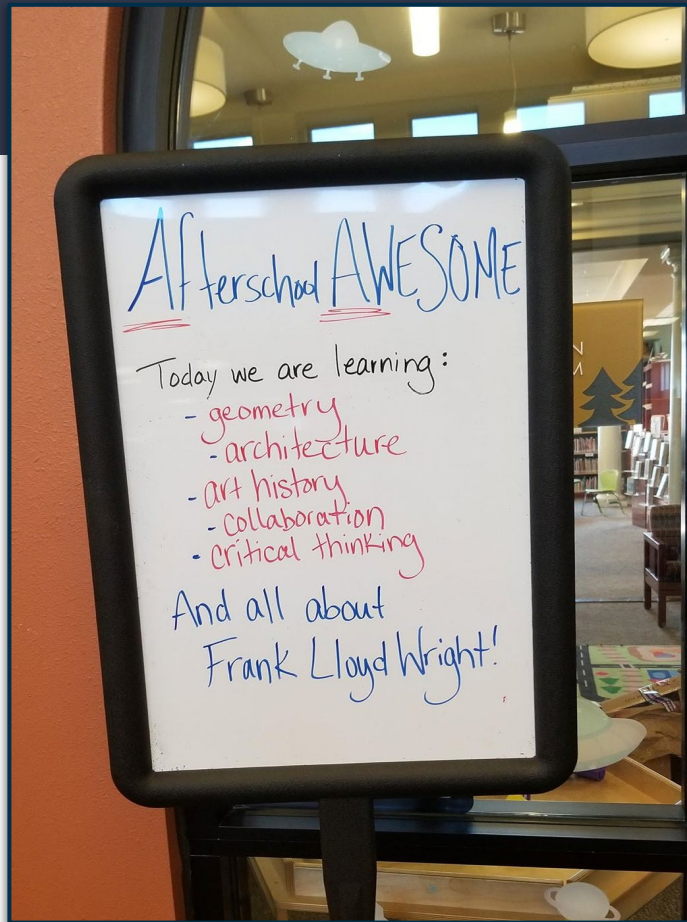 Afterschool AWESOME
Today we are learning:
- geometry
- architecture
- art history
- collaboration
- critical thinking
And all about
Frank Lloyd Wright!
N
M